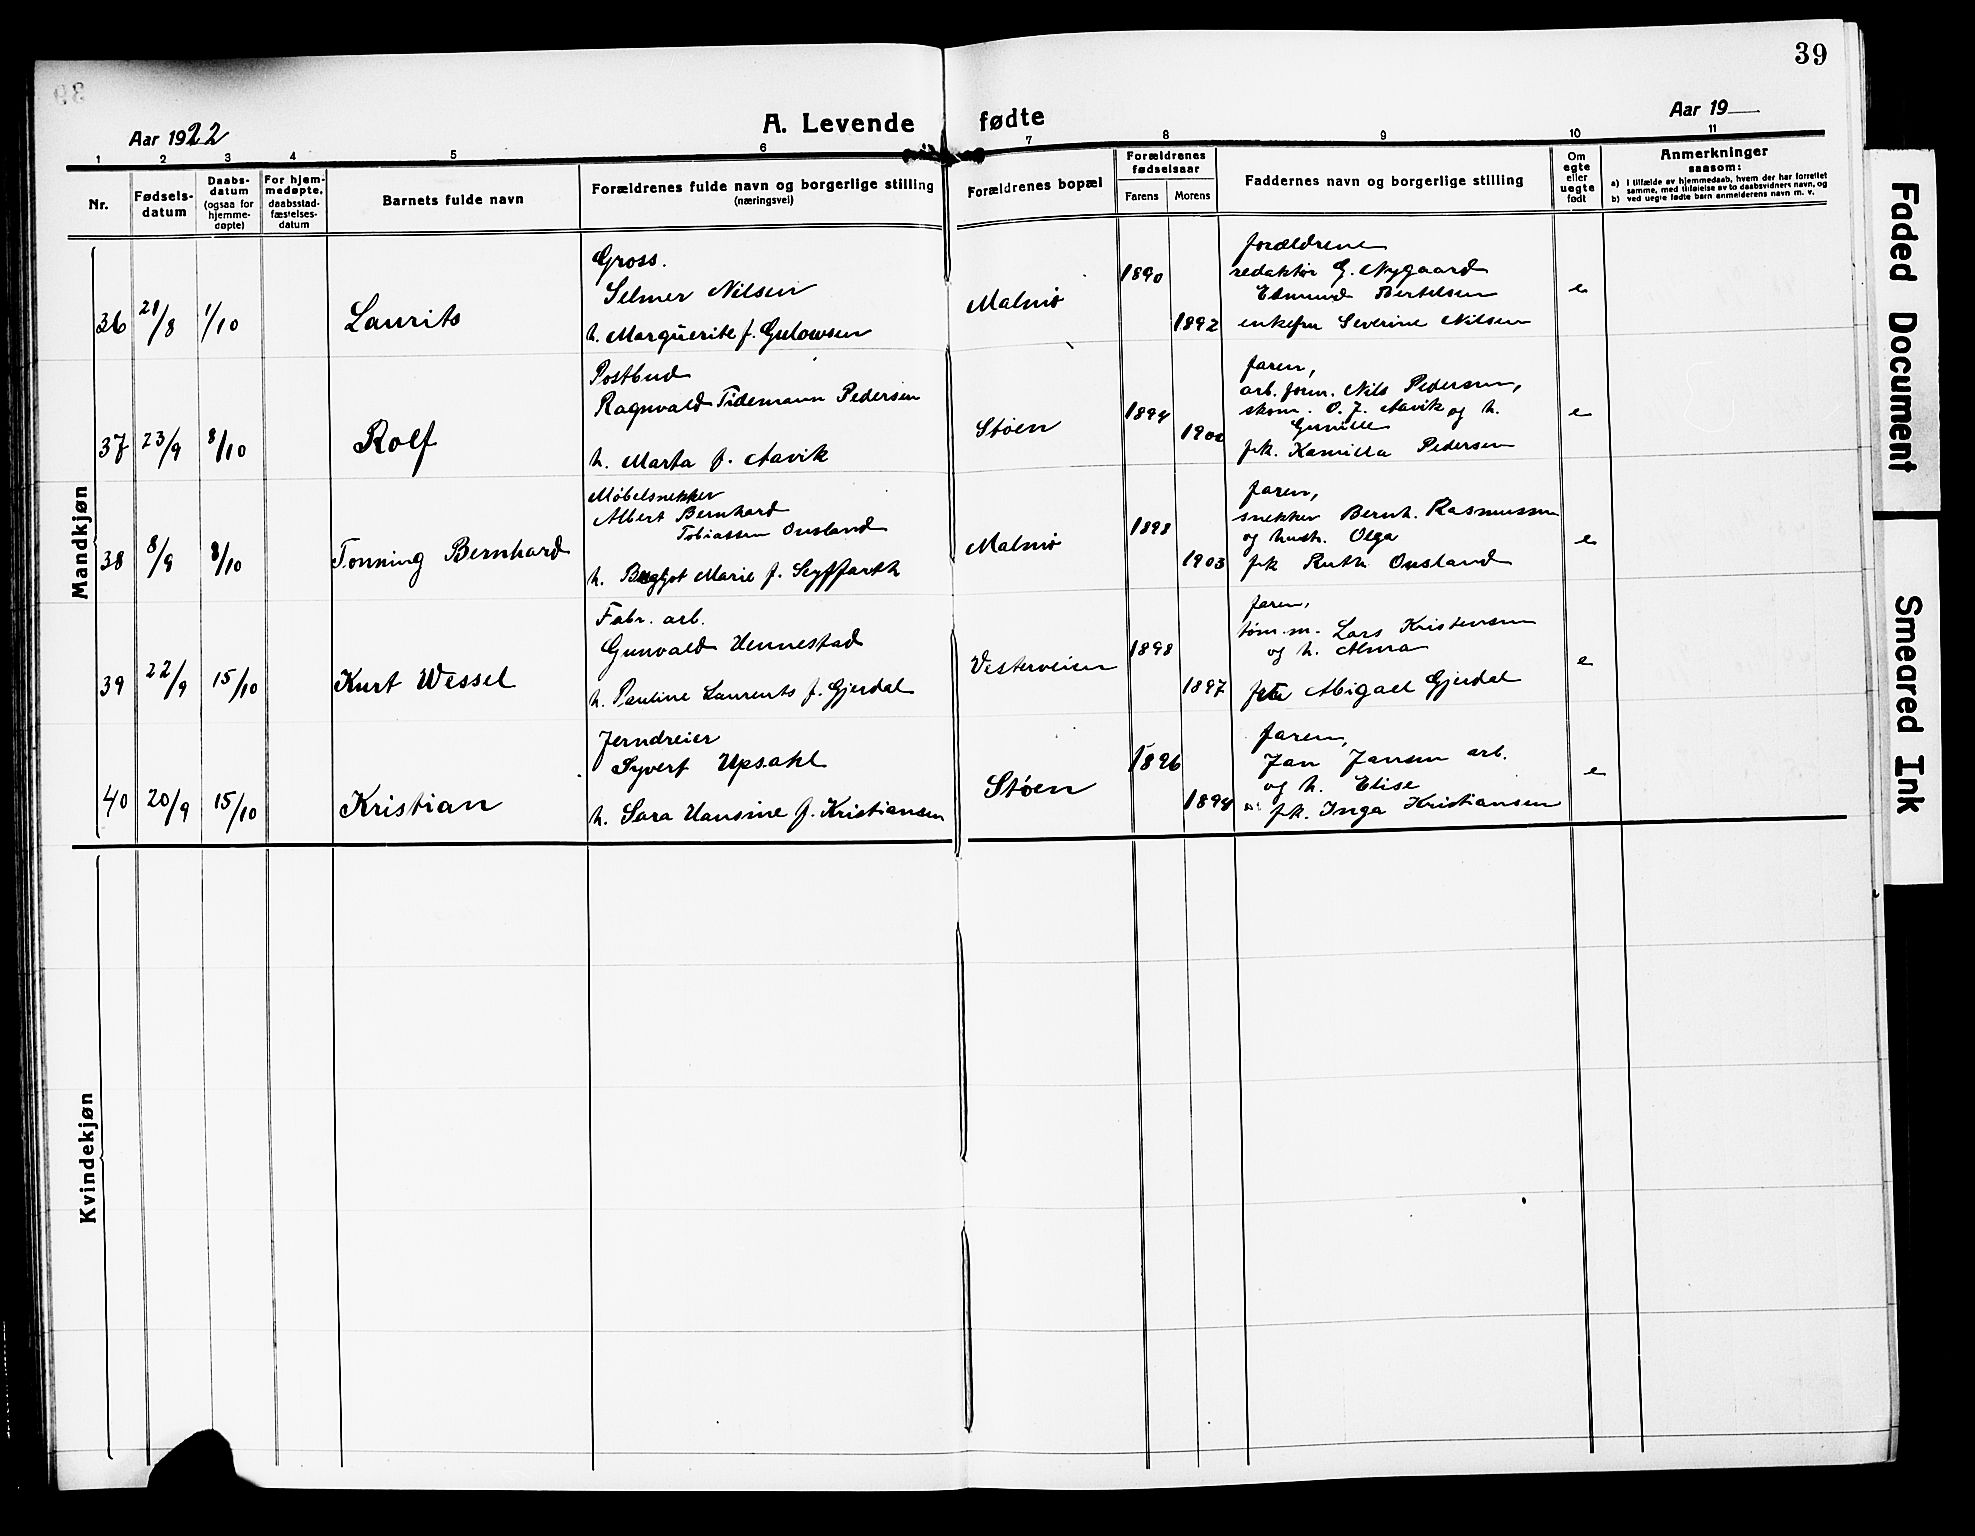 39
A. Levende fødte
Aar 1922
Aar 19
1 2 3 4 5 6 7 8 9 10 11
Nr.
Fødsels-
datum
Daabs-
datum
(ogsaa for
hjemme-
døpte)
For hjem-
medøpte,
daabsstad-
fæstelses-
datum
Barnets fulde navn
Forældrenes fulde navn og borgerlige stilling
(næringsvei)
Forældrenes bopæl
Forældrenes
fødselsaar
Farens Morens
Faddernes navn og borgerlige stilling
Om
egte
eller
uegte
født
Anmerkninger
saasom:
a) i tilfælde av hjemmedaab, hvem der har forrettet
samme, med tilføielse av to daabsvidners navn, og
b) ved uegte fødte barn anmelderens navn m. v.
Mandkjøn
36 21/8 1/10 Laurits
Gross.
Selmer Nilsen
h. Marguerite f. Gulowsen
Malmø
1890
1892
forældrene
redaktør G. Nygaard
Edmund Bertelsen
enkefru Severine Nilsen
e
37 23/9 8/10 Rolf
Postbud
Ragnvald Tidemann Pedersen
h. Marta f. Aavik
Støen
1894
1900
faren,
arb. form. Nils Pedersen,
skom. O. J. Aavik og h.
Gunille
frk. Kamilla Pedersen
e
38 8/9 8/10 Tonning Bernhard
Møbelsnekker
Albert Bernhard
Tobiassen Ousland
h. Bergljot Marie f. Seyffarth
Malmø
1898
1903
faren,
snekker Bernh. Rasmussen
og hustr. Olga
frk Ruth Ousland
e
39 22/9 15/10 Kurt Wessel
Fabr. arb.
Gunvald Vennestad
h. Pauline Laurents f. Gjerdal
Vesterveien
1898
1897
faren,
tøm.m. Lars Kristensen
og h. Alma
Abigael Gjerdal
e
40 20/9 15/10 Kristian
Jerndreier
Syvert Upsahl
h. Sara Hansine f. Kristiansen
Støen
1896
1894
faren,
Jan Jansen arb.
og h. Elise
frk. Inga Kristiansen
e
Kvindekjøn
Faded Document
Smeared Ink